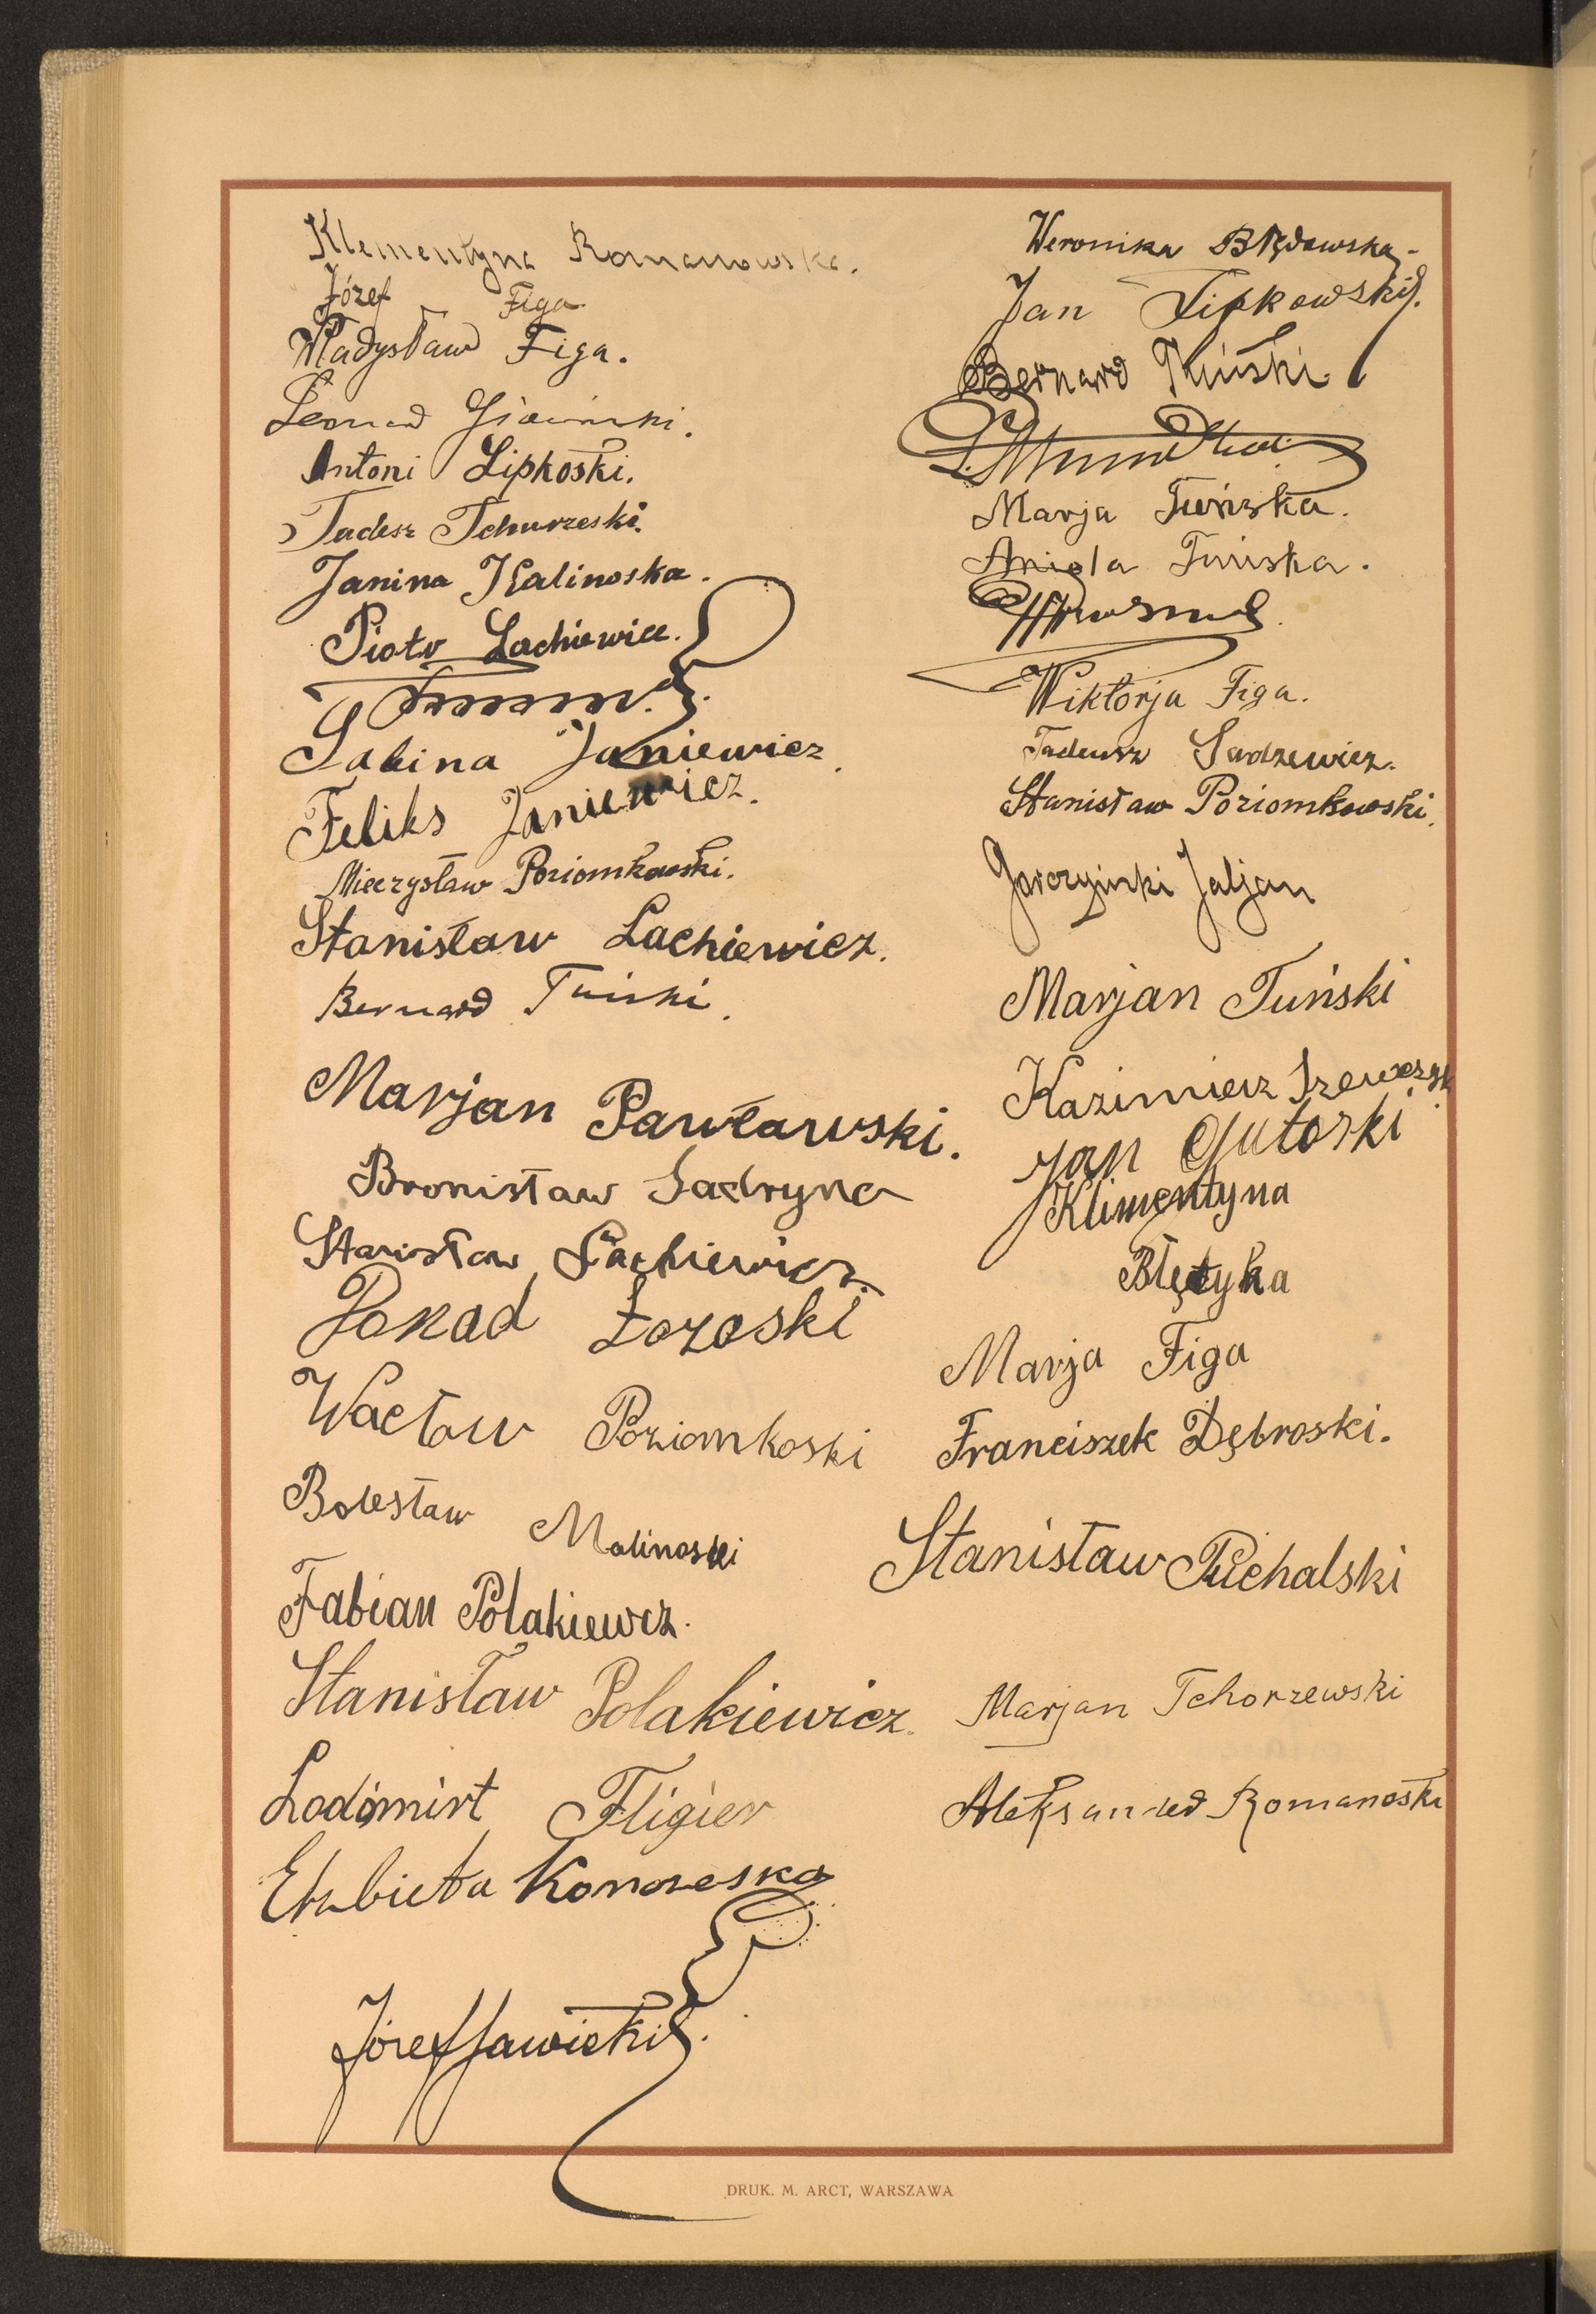 Klementyna Romanowska.
Józef Figa
Władysław Figa.
Antoni Lipkoski.
Tadesz Tchurzeski.
Janina Kalinoska.
Piotr Lachiewicz.
Sabina Janiewicz.
Feliks Janiewicz.
Mieczysław Poziomkowski.
Stanisław Lachiewicz.
Bernard Tuiski.
Marjan Pawławski.
Bronisław Sadryna
Stanisław Lachiewicz.
Łozoski
Wacław Poziomkoski
Bolesław Malinoski
Fabian Polakiewcz.
Stanisław Polakiewicz.
Lodòmirt Fligier
Elzbieta
Józef Sawicki
Weronika
Jan Lipkowski.
Bernard
Marja Tuńska.
Aniela Tuńska.
Wiktorja Figa.
Tadeusz Sadzewicz.
Stanisław Poziomkowski.
Marjan Tuński
Kazimierz
Jan Gutoski
Klimentyna
Błętyka
Marja Figa
Franciszek Dębroski.
Stanisław Puchalski
Marjan Tchorzewski
Romanoski
DRUK. M. ARCT, WARSZAWA